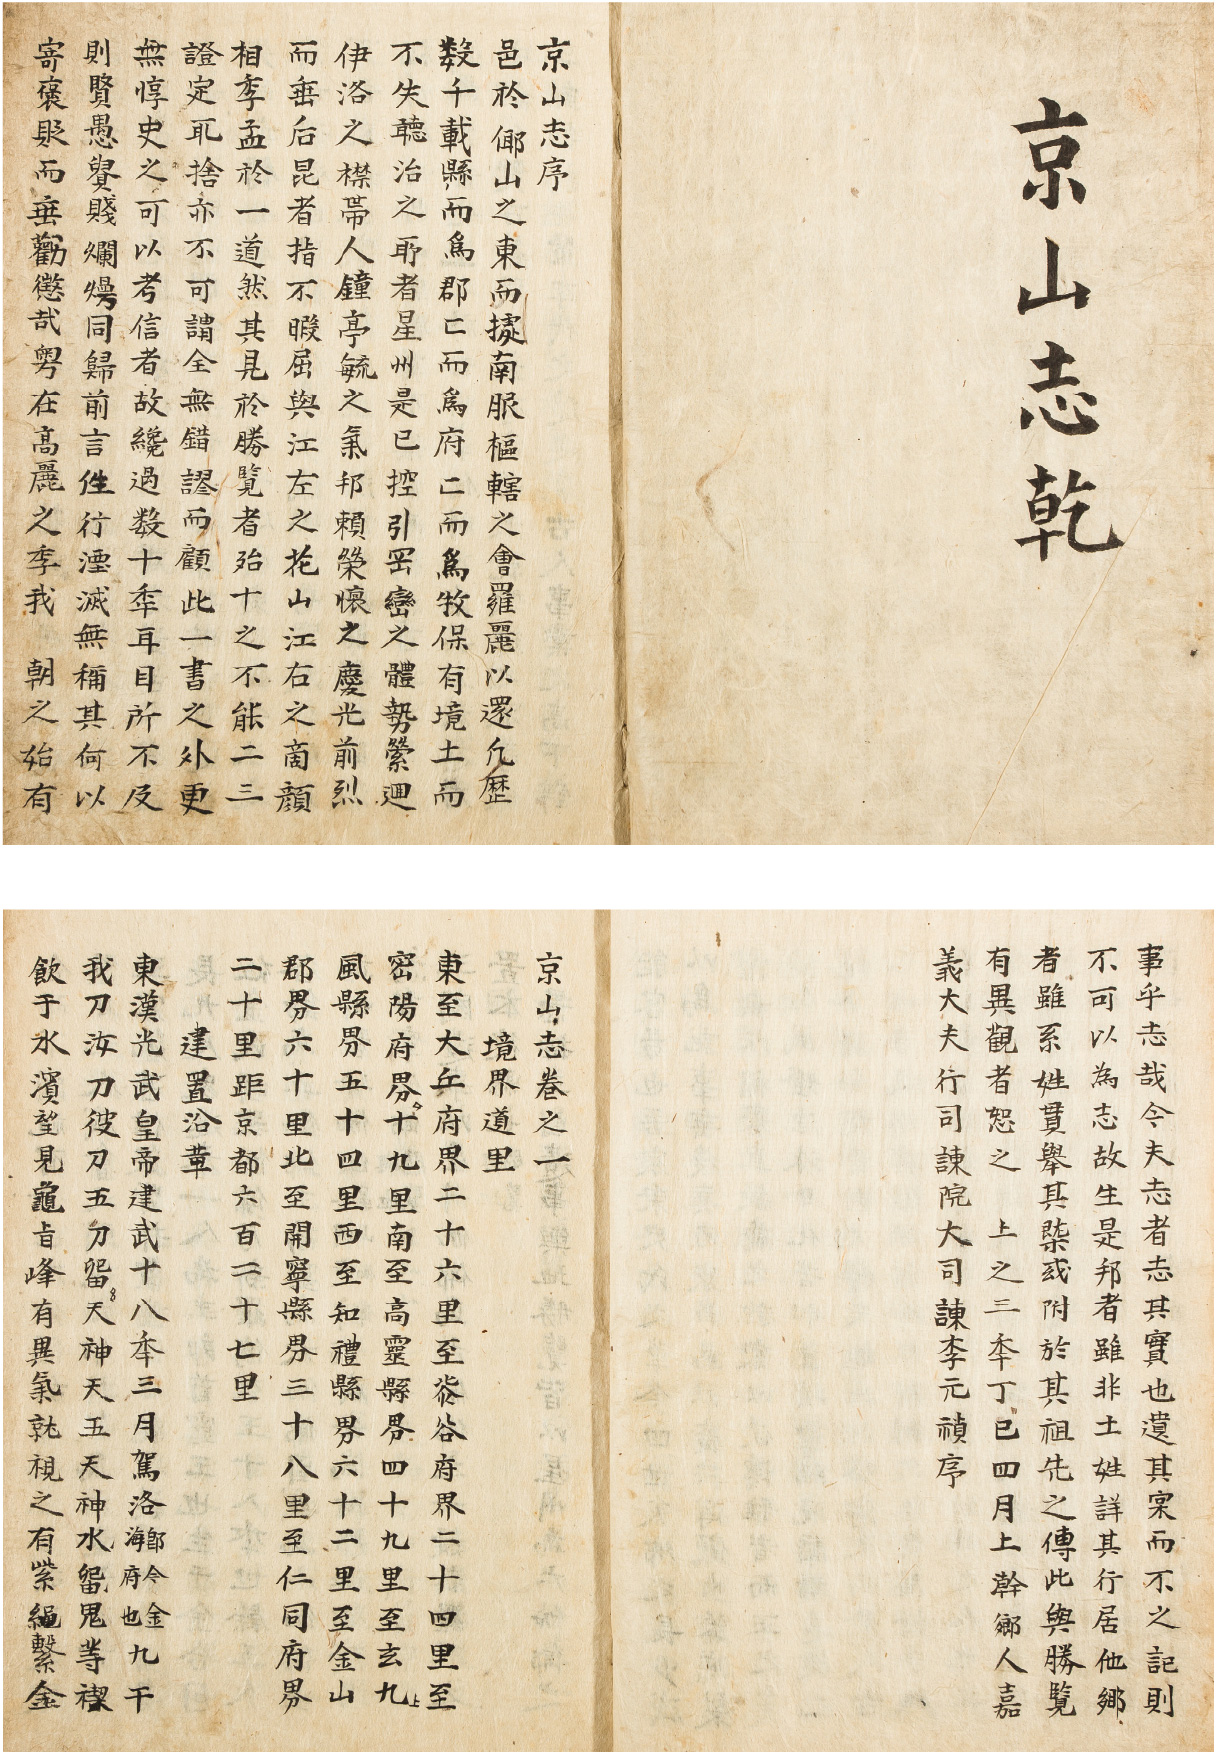 京山志乾
京山志序
邑於倻山之東而據南服樞轄之會羅麗以還凡歷
数千載縣而爲郡已而爲府已而爲牧保有境土而
不失聽治之所者星州是已控引罡巒之體勢縈廻
伊洛之襟帶人鐘亭毓之氣邦賴榮懷之慶光前烈
而垂后昆者指不暇屈與江左之花山江右之商顔
相季孟於一道然其見於勝覧者殆十之不能二三
證定取捨亦不可謂全無錯謬而顧此一書之外更
無惇史之可以考信者故纔過数十年耳目所不及
則賢愚貴賤爛熳同歸前言徃行湮滅無稱其何以
寄褒貶而垂勸懲哉粤在高麗之季我 朝之始有
事乎志哉今夫志者志其實也遺其宲而不之記則
不可以為志故生是邦者雖非土姓詳其行居他鄕
者雖系姓貫舉其槩或附於其祖先之傳此與勝覧
有異觀者恕之 上之三年丁巳四月上澣鄕人嘉
義大夫行司諫院大司諫李元禎序
京山志卷之一
境界道里
東至大丘府界二十六里至柒谷府界二十四里至
密陽府界十九里南至高靈縣界四十九里至玄九
上
風縣界五十四里西至知禮縣界六十二里至金山
郡界六十里北至開寧縣界三十八里至仁同府界
二十里距京都六百二十七里
建置沿革
東漢光武皇帝建武十八年三月駕洛卽今金海府也九干
我刀汝刀彼刀五刀留天神天五天神水留鬼等禊
飲于水濱望見龜旨峰有異氣就視之有紫繩繫金